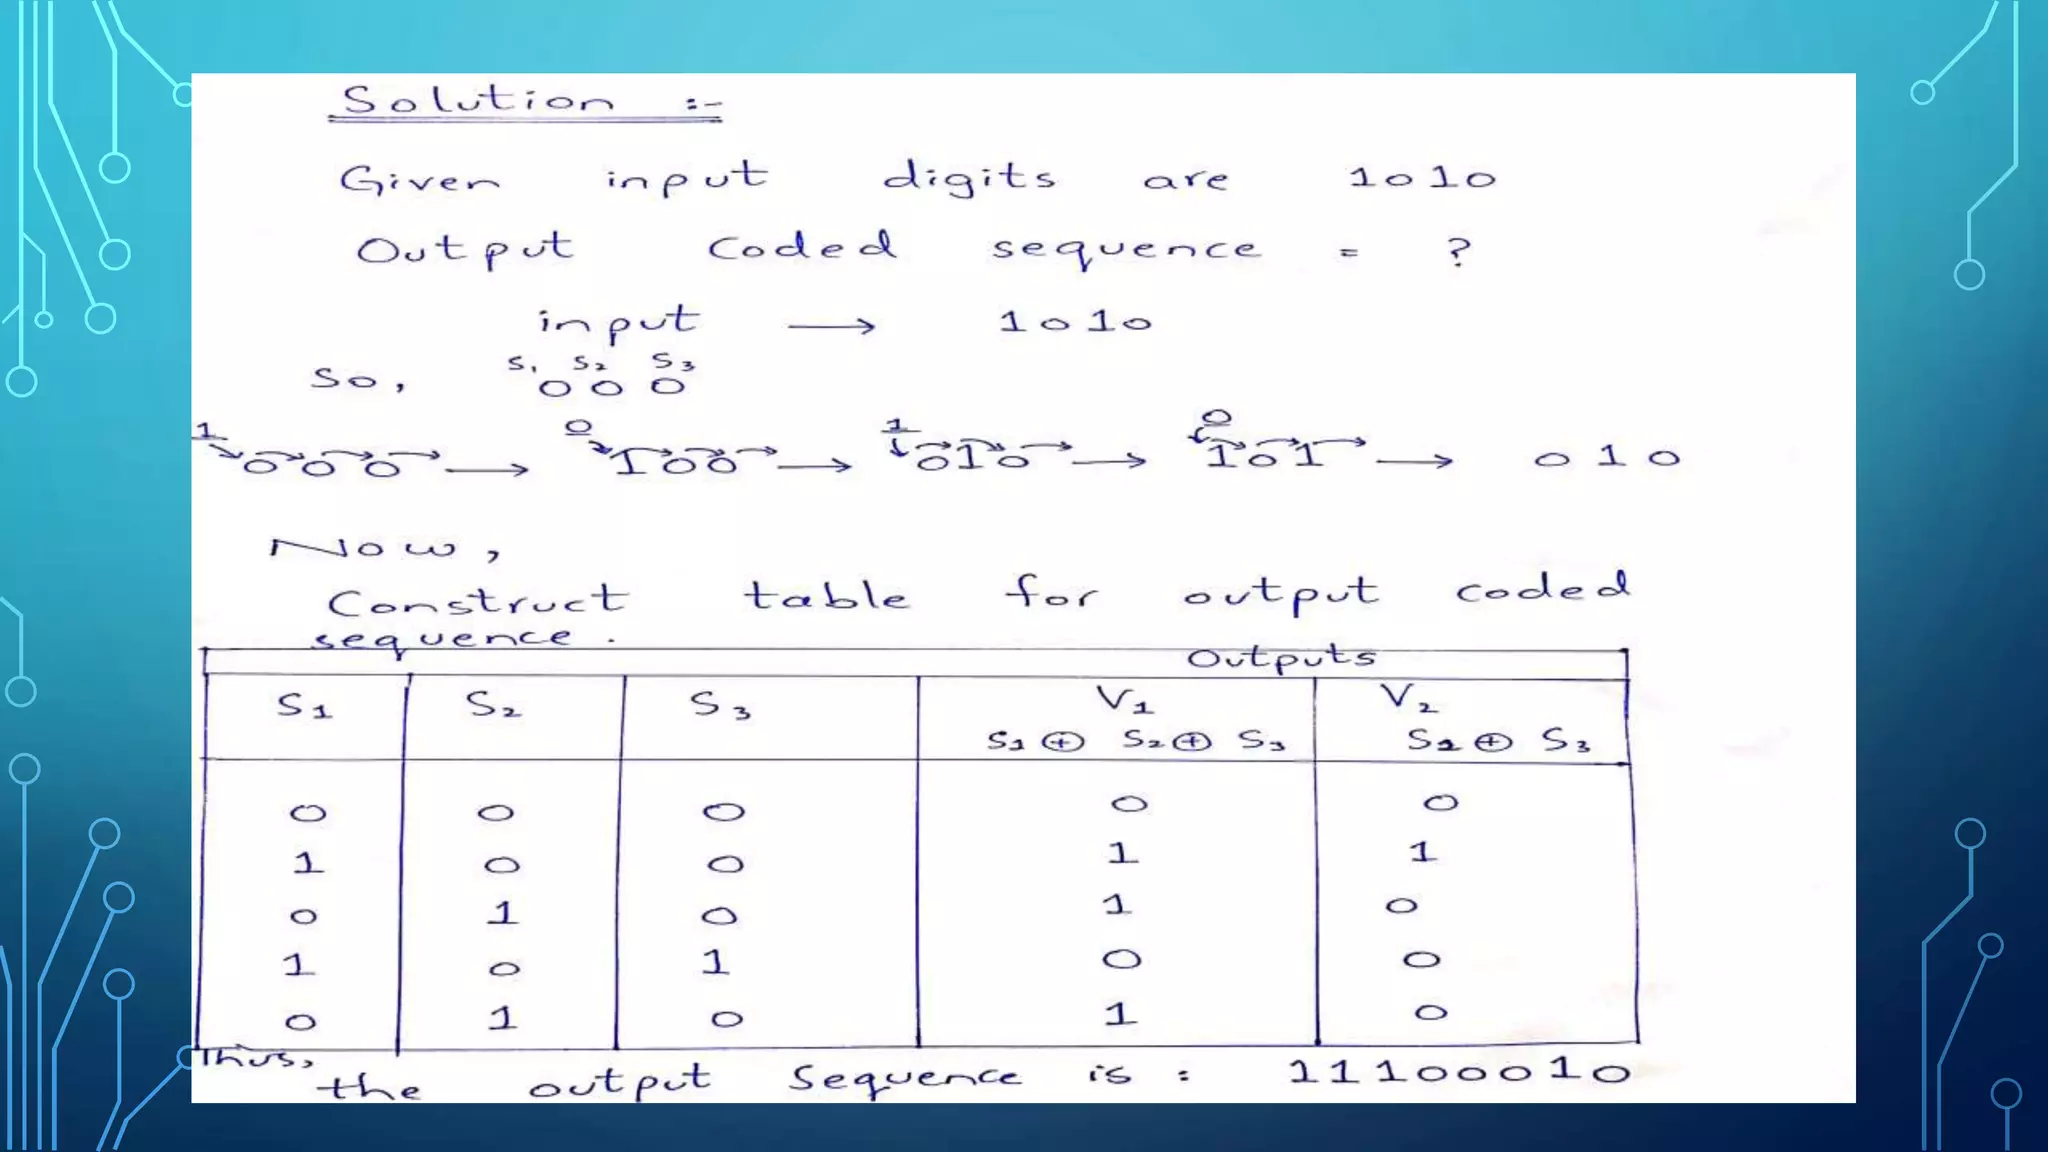 Solution :-
Given input digits are 1010
Output Coded sequence = ?
input → 1010
S1 S2 S3
So, 000
1 0 1 0
000 → 100 → 010 → 101 → 010
Now,
Construct table for output coded
sequence.
Outputs
S1 S2 S3 V1 V2
S1 ⊕ S2 ⊕ S3 S1 ⊕ S3
0 0 0 0 0
1 0 0 1 1
0 1 0 1 0
1 0 1 0 0
0 1 0 1 0
Thus,
the output Sequence is : 11100010